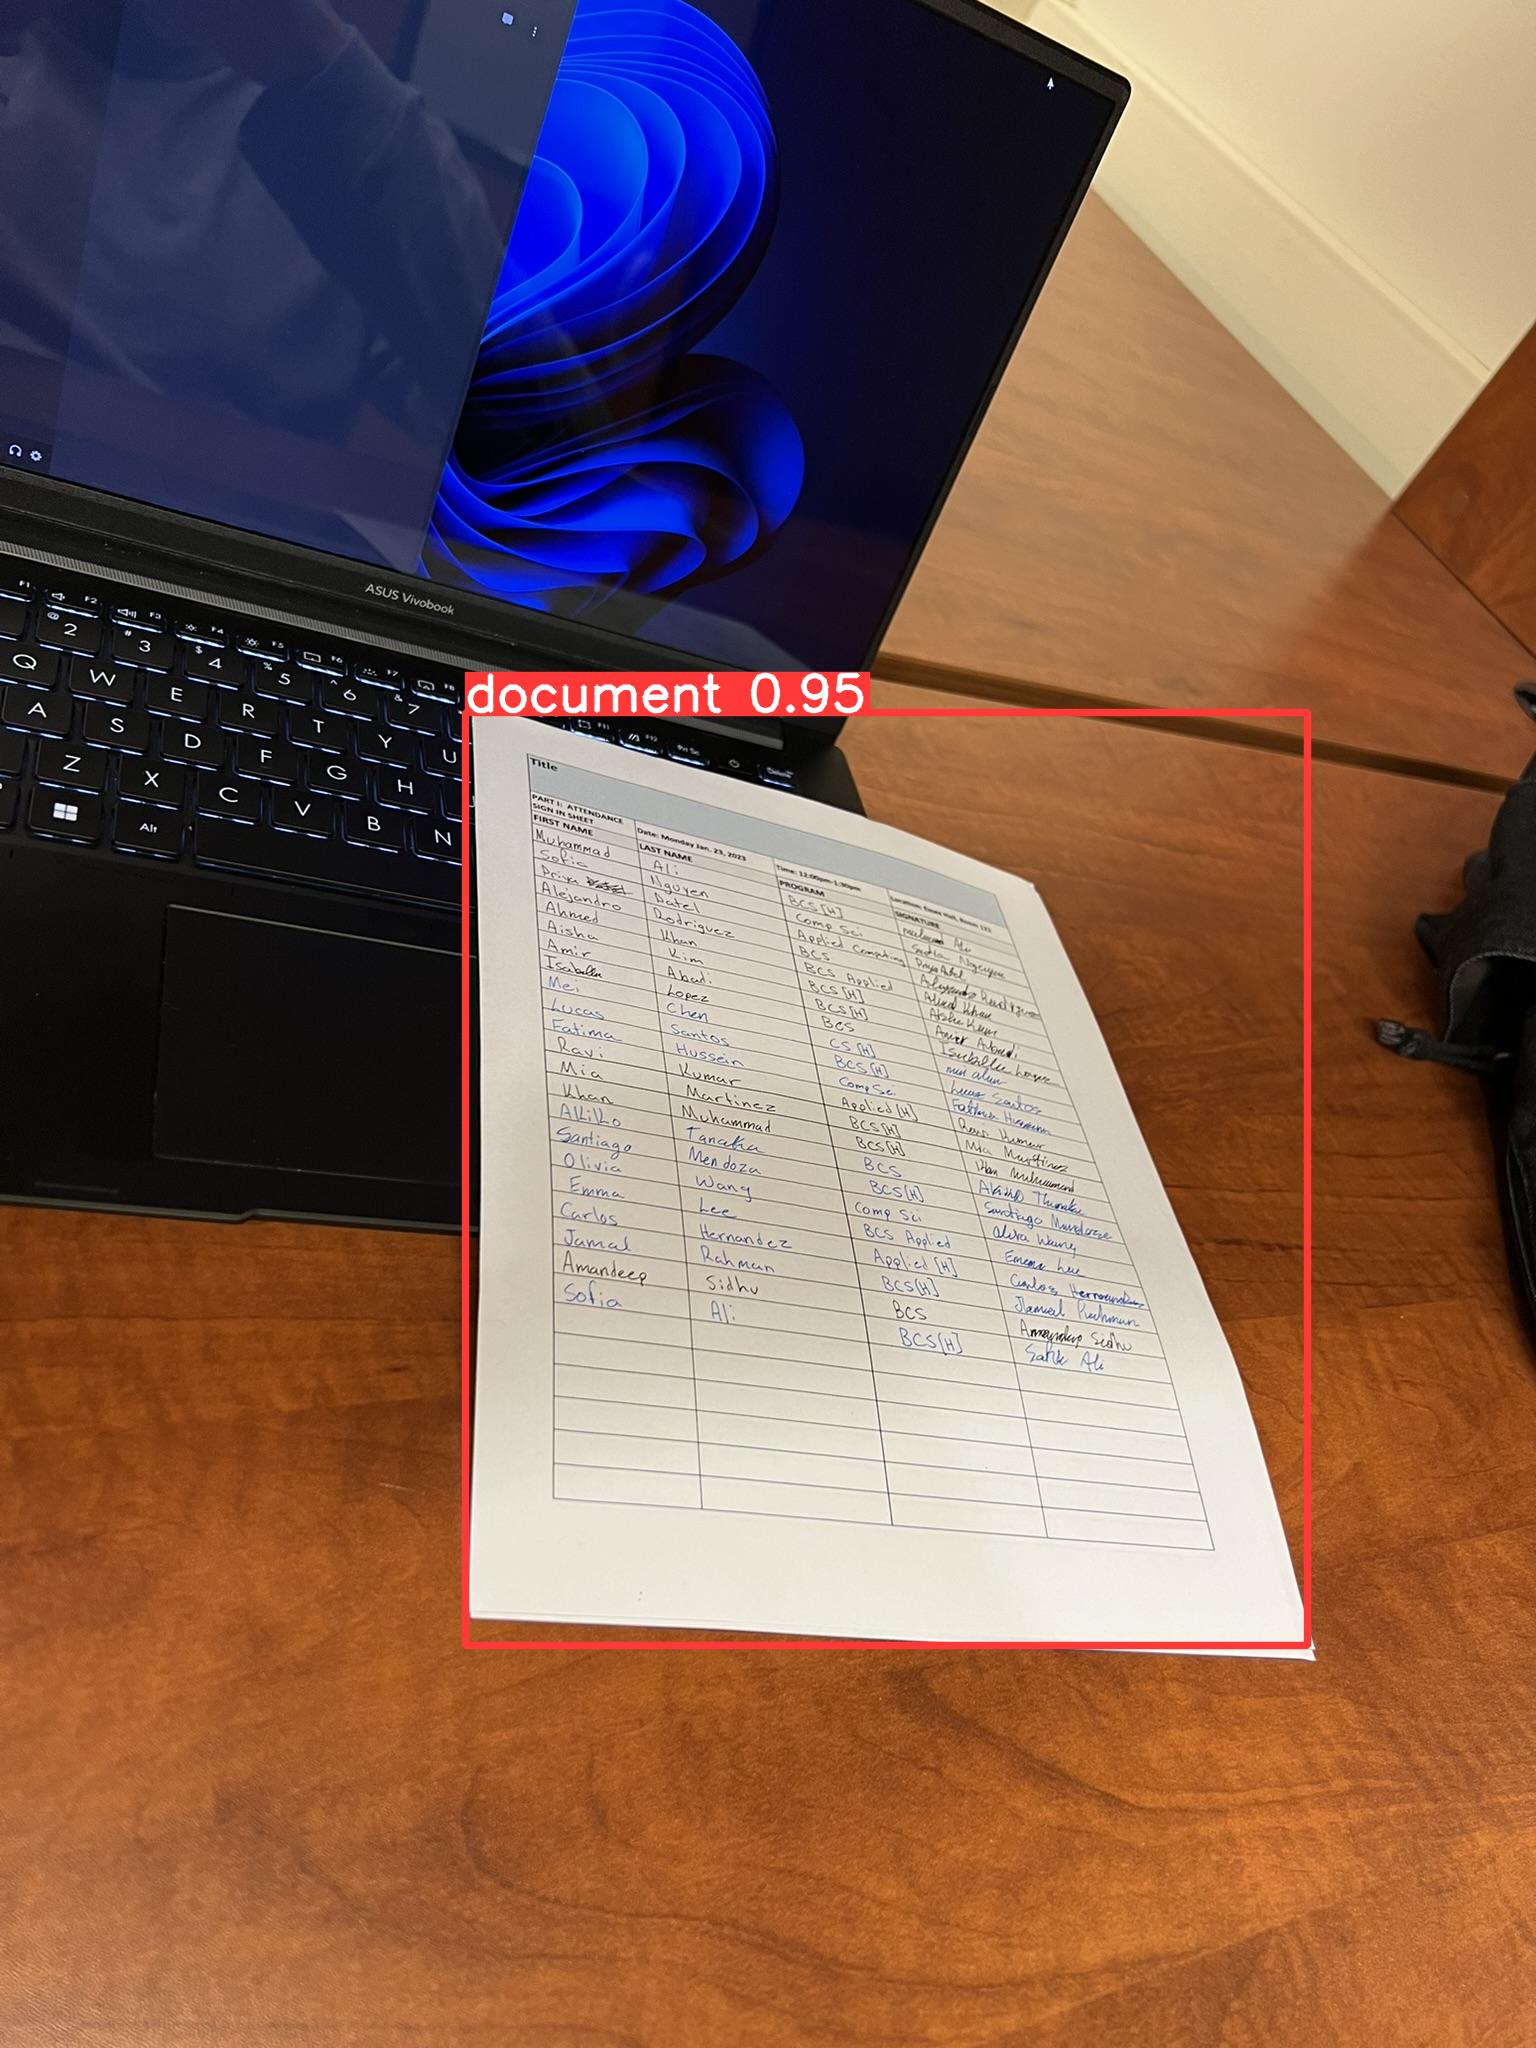 ASUS Vivobook
F1 F2 F3 F4 F5 F6 F7 F8 F11 F12 Prt Sc Delete
@ 2 # 3 $ 4 % 5 ^ 6 & 7
Q W E R T Y U
A S D F G H
Z X C V B N
Alt
document 0.95
Title
PART I: ATTENDANCE SIGN IN SHEET Date: Monday Jan. 23, 2023 Time: 12:00pm-1:30pm Location: Essex Hall, Room 122
FIRST NAME LAST NAME PROGRAM SIGNATURE
Muhammad Ali BCS [H] Ali
Sofia Nguyen Comp Sci Sofia Nguyen
Priya Patel Applied Computing Priya Patel
Alejandro Rodriguez BCS Alejandro Rodriguez
Ahmed Khan BCS Applied Ahmed Khan
Aisha Kim BCS [H] Aisha Kim
Amir Abadi BCS [H] Amir Abadi
Isabella Lopez BCS Isabella Lopez
Mei Chen CS [H] mei chen
Lucas Santos BCS [H] Lucas Santos
Fatima Hussein Comp Sci Fatima Hussein
Ravi Kumar Applied [H] Ravi Kumar
Mia Martinez BCS [H] Mia Martinez
Khan Muhammad BCS [H] Khan Muhammad
AkiKo Tanaka BCS Akiko Tanaka
Santiago Mendoza BCS [H] Santiago Mendoza
Olivia Wang Comp Sci Olivia Wang
Emma Lee BCS Applied Emma Lee
Carlos Hernandez Applied [H] Carlos Hernandez
Jamal Rahman BCS [H] Jamal Rahman
Amandeep Sidhu BCS Amandeep Sidhu
Sofia Ali BCS [H] Sofia Ali